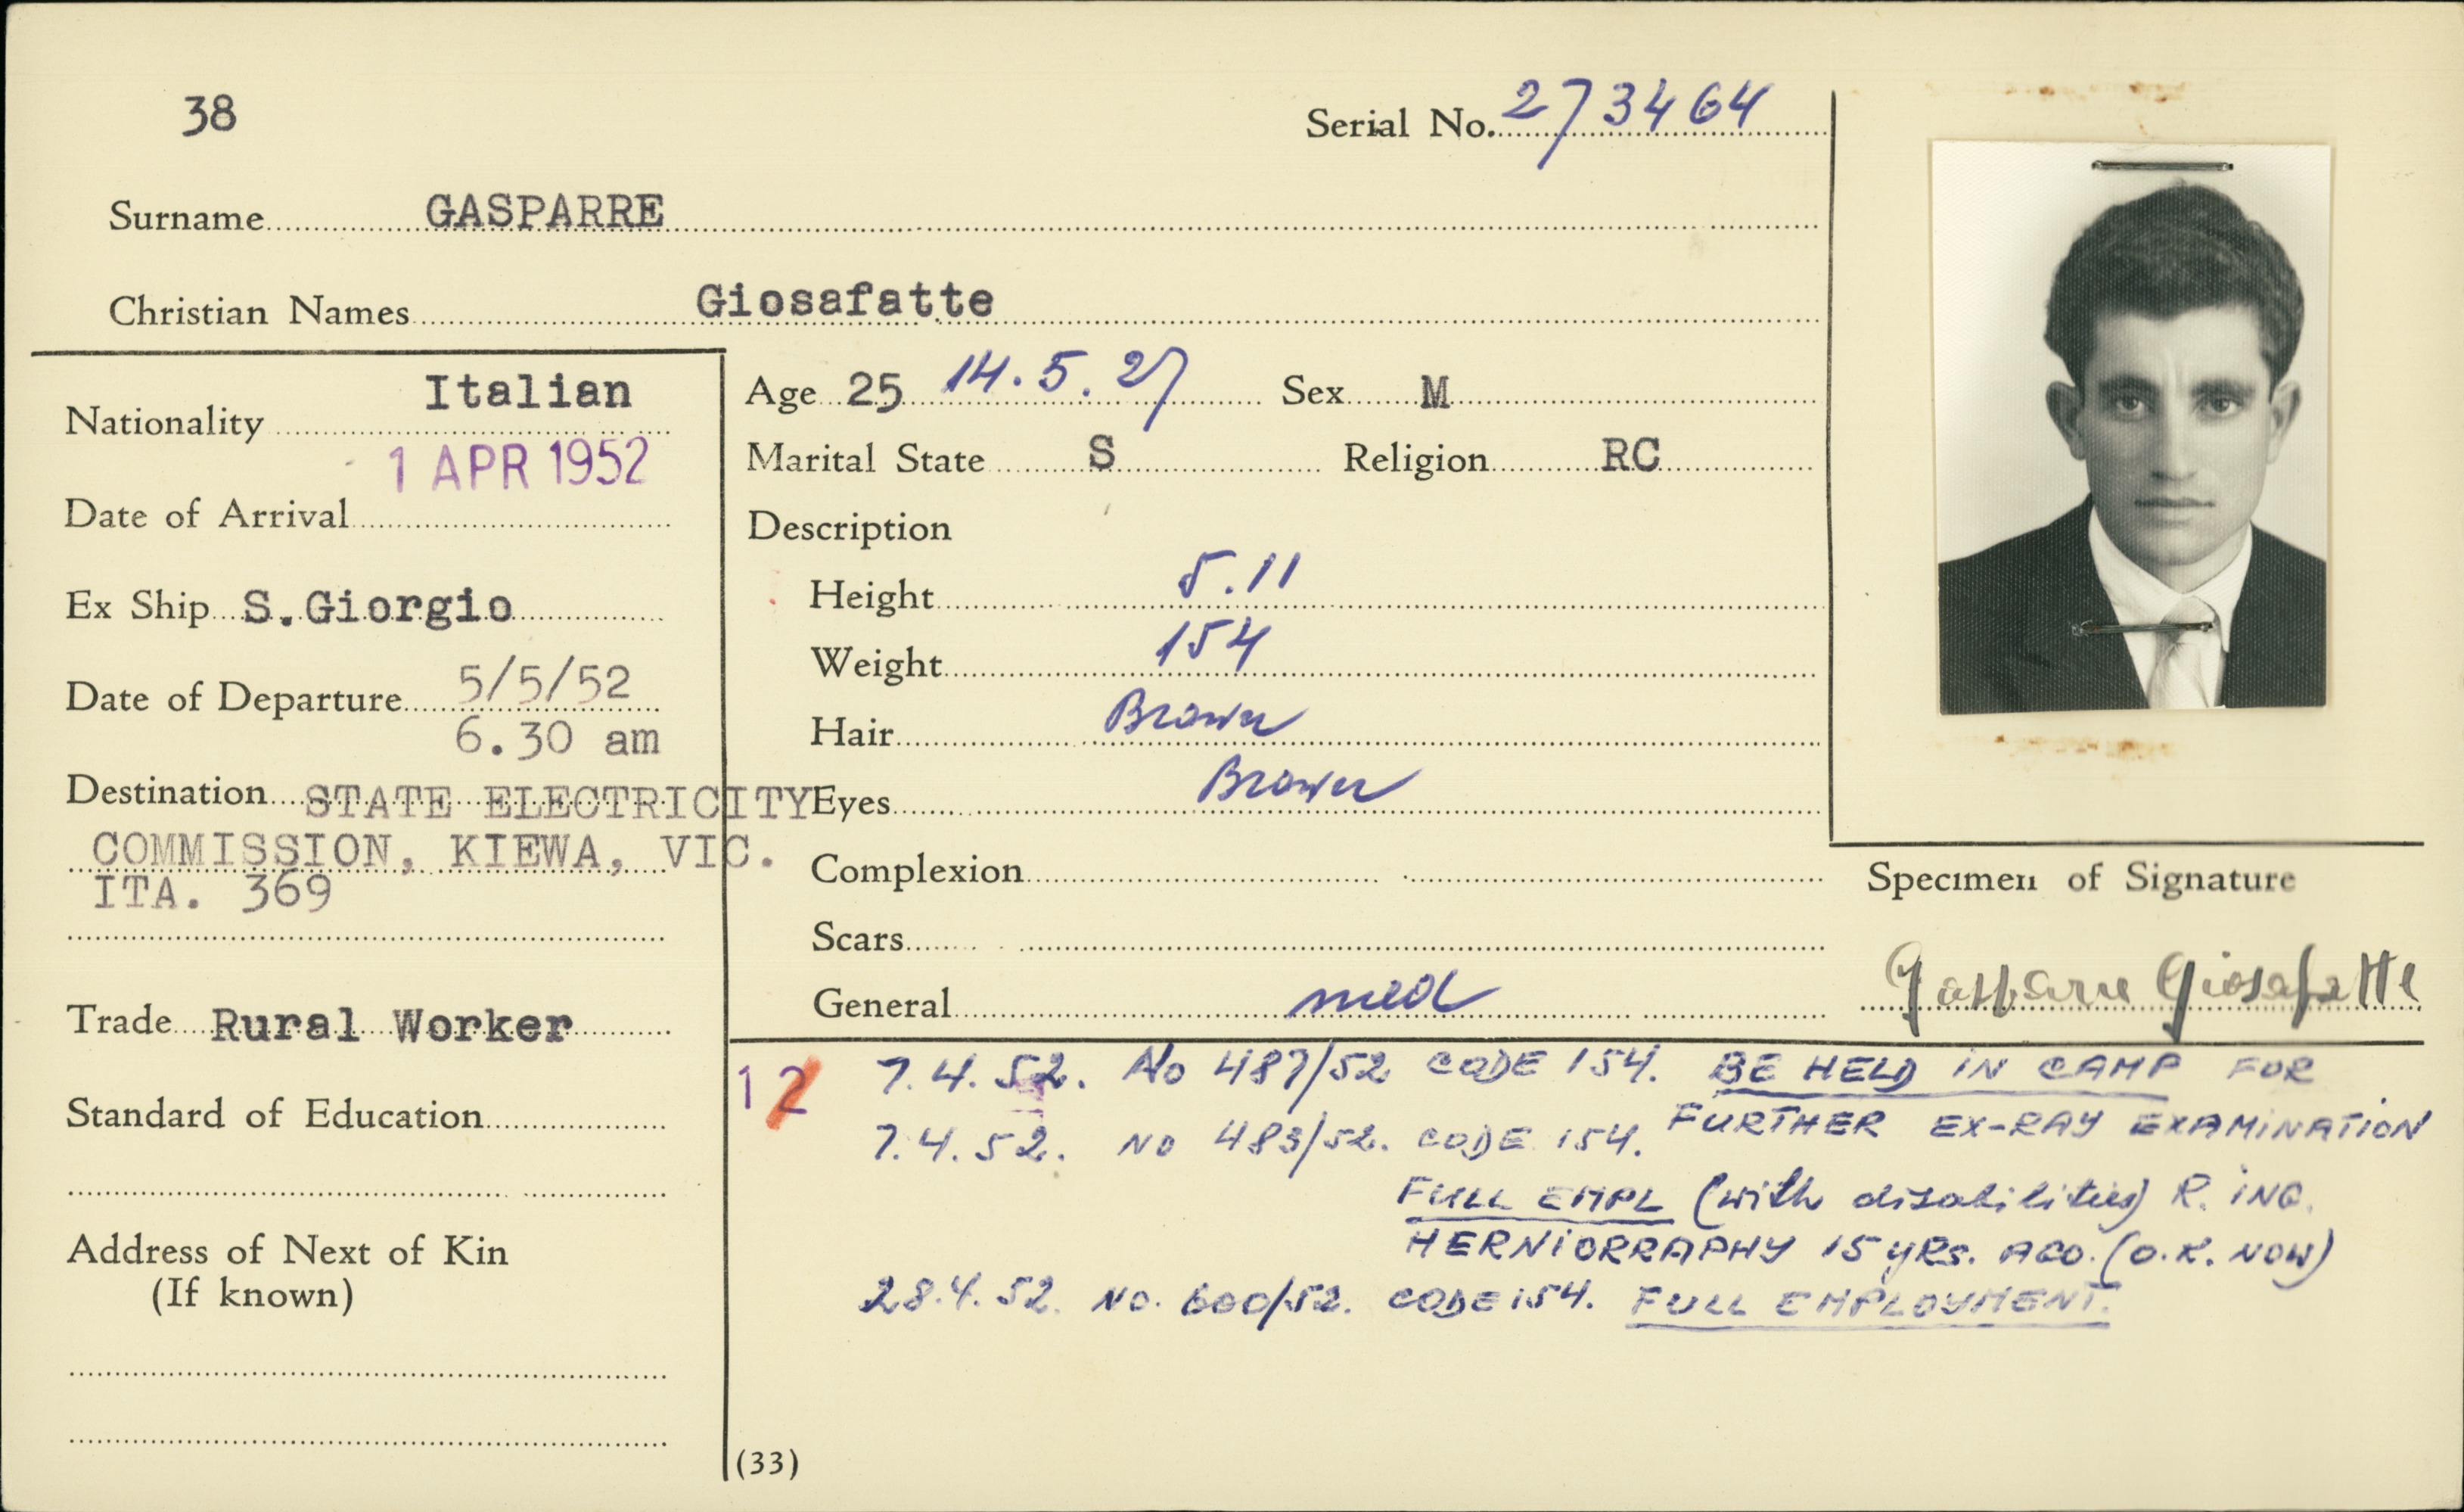 38
Serial No. 273464
Surname GASPARRE
Christian Names Giosafatte
Nationality Italian
Date of Arrival 1 APR 1952
Ex Ship S.Giorgio
Date of Departure 5/5/52
6.30 am
Destination STATE ELECTRICITY
COMMISSION, KIEWA, VIC.
ITA. 369
Trade Rural Worker
Standard of Education
Address of Next of Kin
(If known)
Age 25 14.5.27 Sex M
Marital State S Religion RC
Description
Height 5.11
Weight 154
Hair Brown
Eyes Brown
Complexion
Scars
General med
Specimen of Signature
Gasparre Giosafatte
12 7.4.52. No 487/52 CODE 154. BE HELD IN CAMP FOR
FURTHER EX-RAY EXAMINATION
7.4.52. NO 483/52. CODE 154.
FULL EMPL (with disabilities) R. ING.
HERNIORRAPHY 15 YRS. AGO. (O.K. NOW)
28.4.52. NO. 600/52. CODE 154. FULL EMPLOYMENT.
(33)